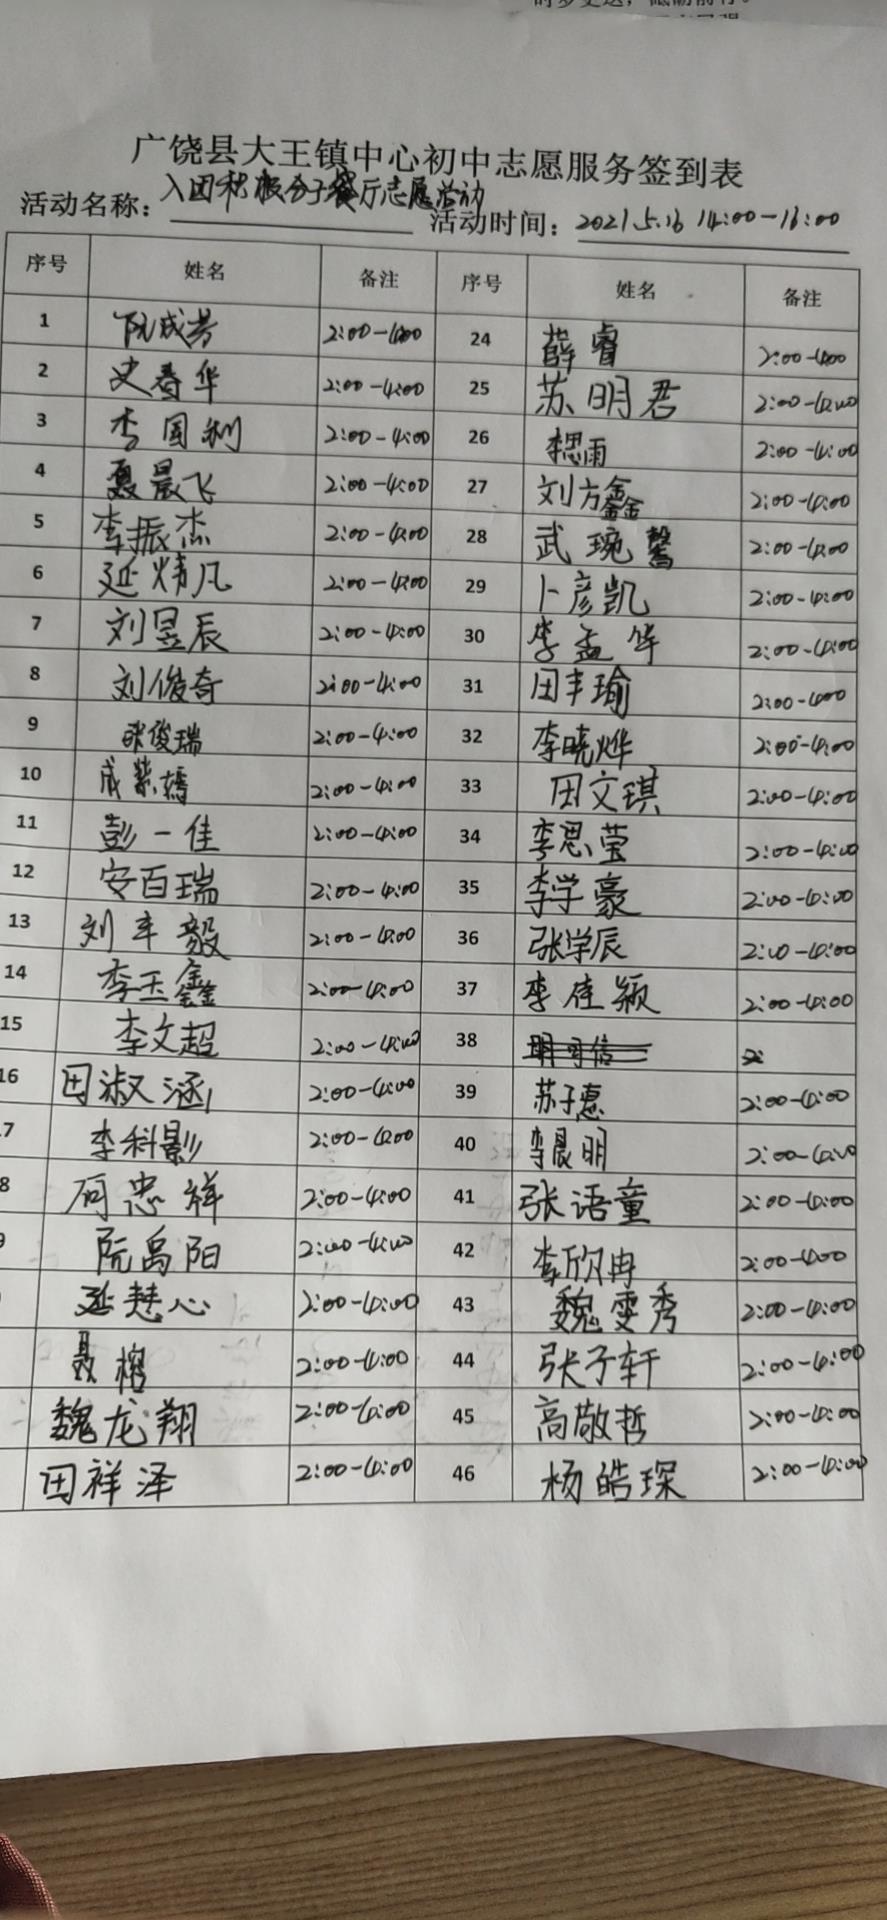 广饶县大王镇中心初中志愿服务签到表
活动名称：入团积极分子餐厅志愿活动 活动时间：2021.5.16 14:00-16:00
序号 姓名 备注 序号 姓名 备注
1 阮成芳 2:00-4:00 24 薛睿 2:00-4:00
2 史春华 2:00-4:00 25 苏明君 2:00-4:00
3 李国利 2:00-4:00 26 李思雨 2:00-4:00
4 聂晨飞 2:00-4:00 27 刘方鑫 2:00-4:00
5 李振杰 2:00-4:00 28 武琬馨 2:00-4:00
6 延炳凡 2:00-4:00 29 卜彦凯 2:00-4:00
7 刘昱辰 2:00-4:00 30 李孟华 2:00-4:00
8 刘俊奇 2:00-4:00 31 田丰瑜 2:00-4:00
9 张俊瑞 2:00-4:00 32 李晓烨 2:00-4:00
10 成紫嫣 2:00-4:00 33 田文琪 2:00-4:00
11 彭一佳 2:00-4:00 34 李思莹 2:00-4:00
12 安百瑞 2:00-4:00 35 李学豪 2:00-4:00
13 刘丰毅 2:00-4:00 36 张学辰 2:00-4:00
14 李玉鑫 2:00-4:00 37 李佳颖 2:00-4:00
15 李文超 2:00-4:00 38
16 田淑涵 2:00-4:00 39 苏子惠 2:00-4:00
7 李科影 2:00-4:00 40 李晨明 2:00-4:00
8 闫忠祥 2:00-4:00 41 张语童 2:00-4:00
9 阮禹阳 2:00-4:00 42 李欣冉 2:00-4:00
延慧心 2:00-4:00 43 魏雯秀 2:00-4:00
聂榕 2:00-4:00 44 张子轩 2:00-4:00
魏龙翔 2:00-4:00 45 高敬哲 2:00-4:00
田祥泽 2:00-4:00 46 杨皓琛 2:00-4:00